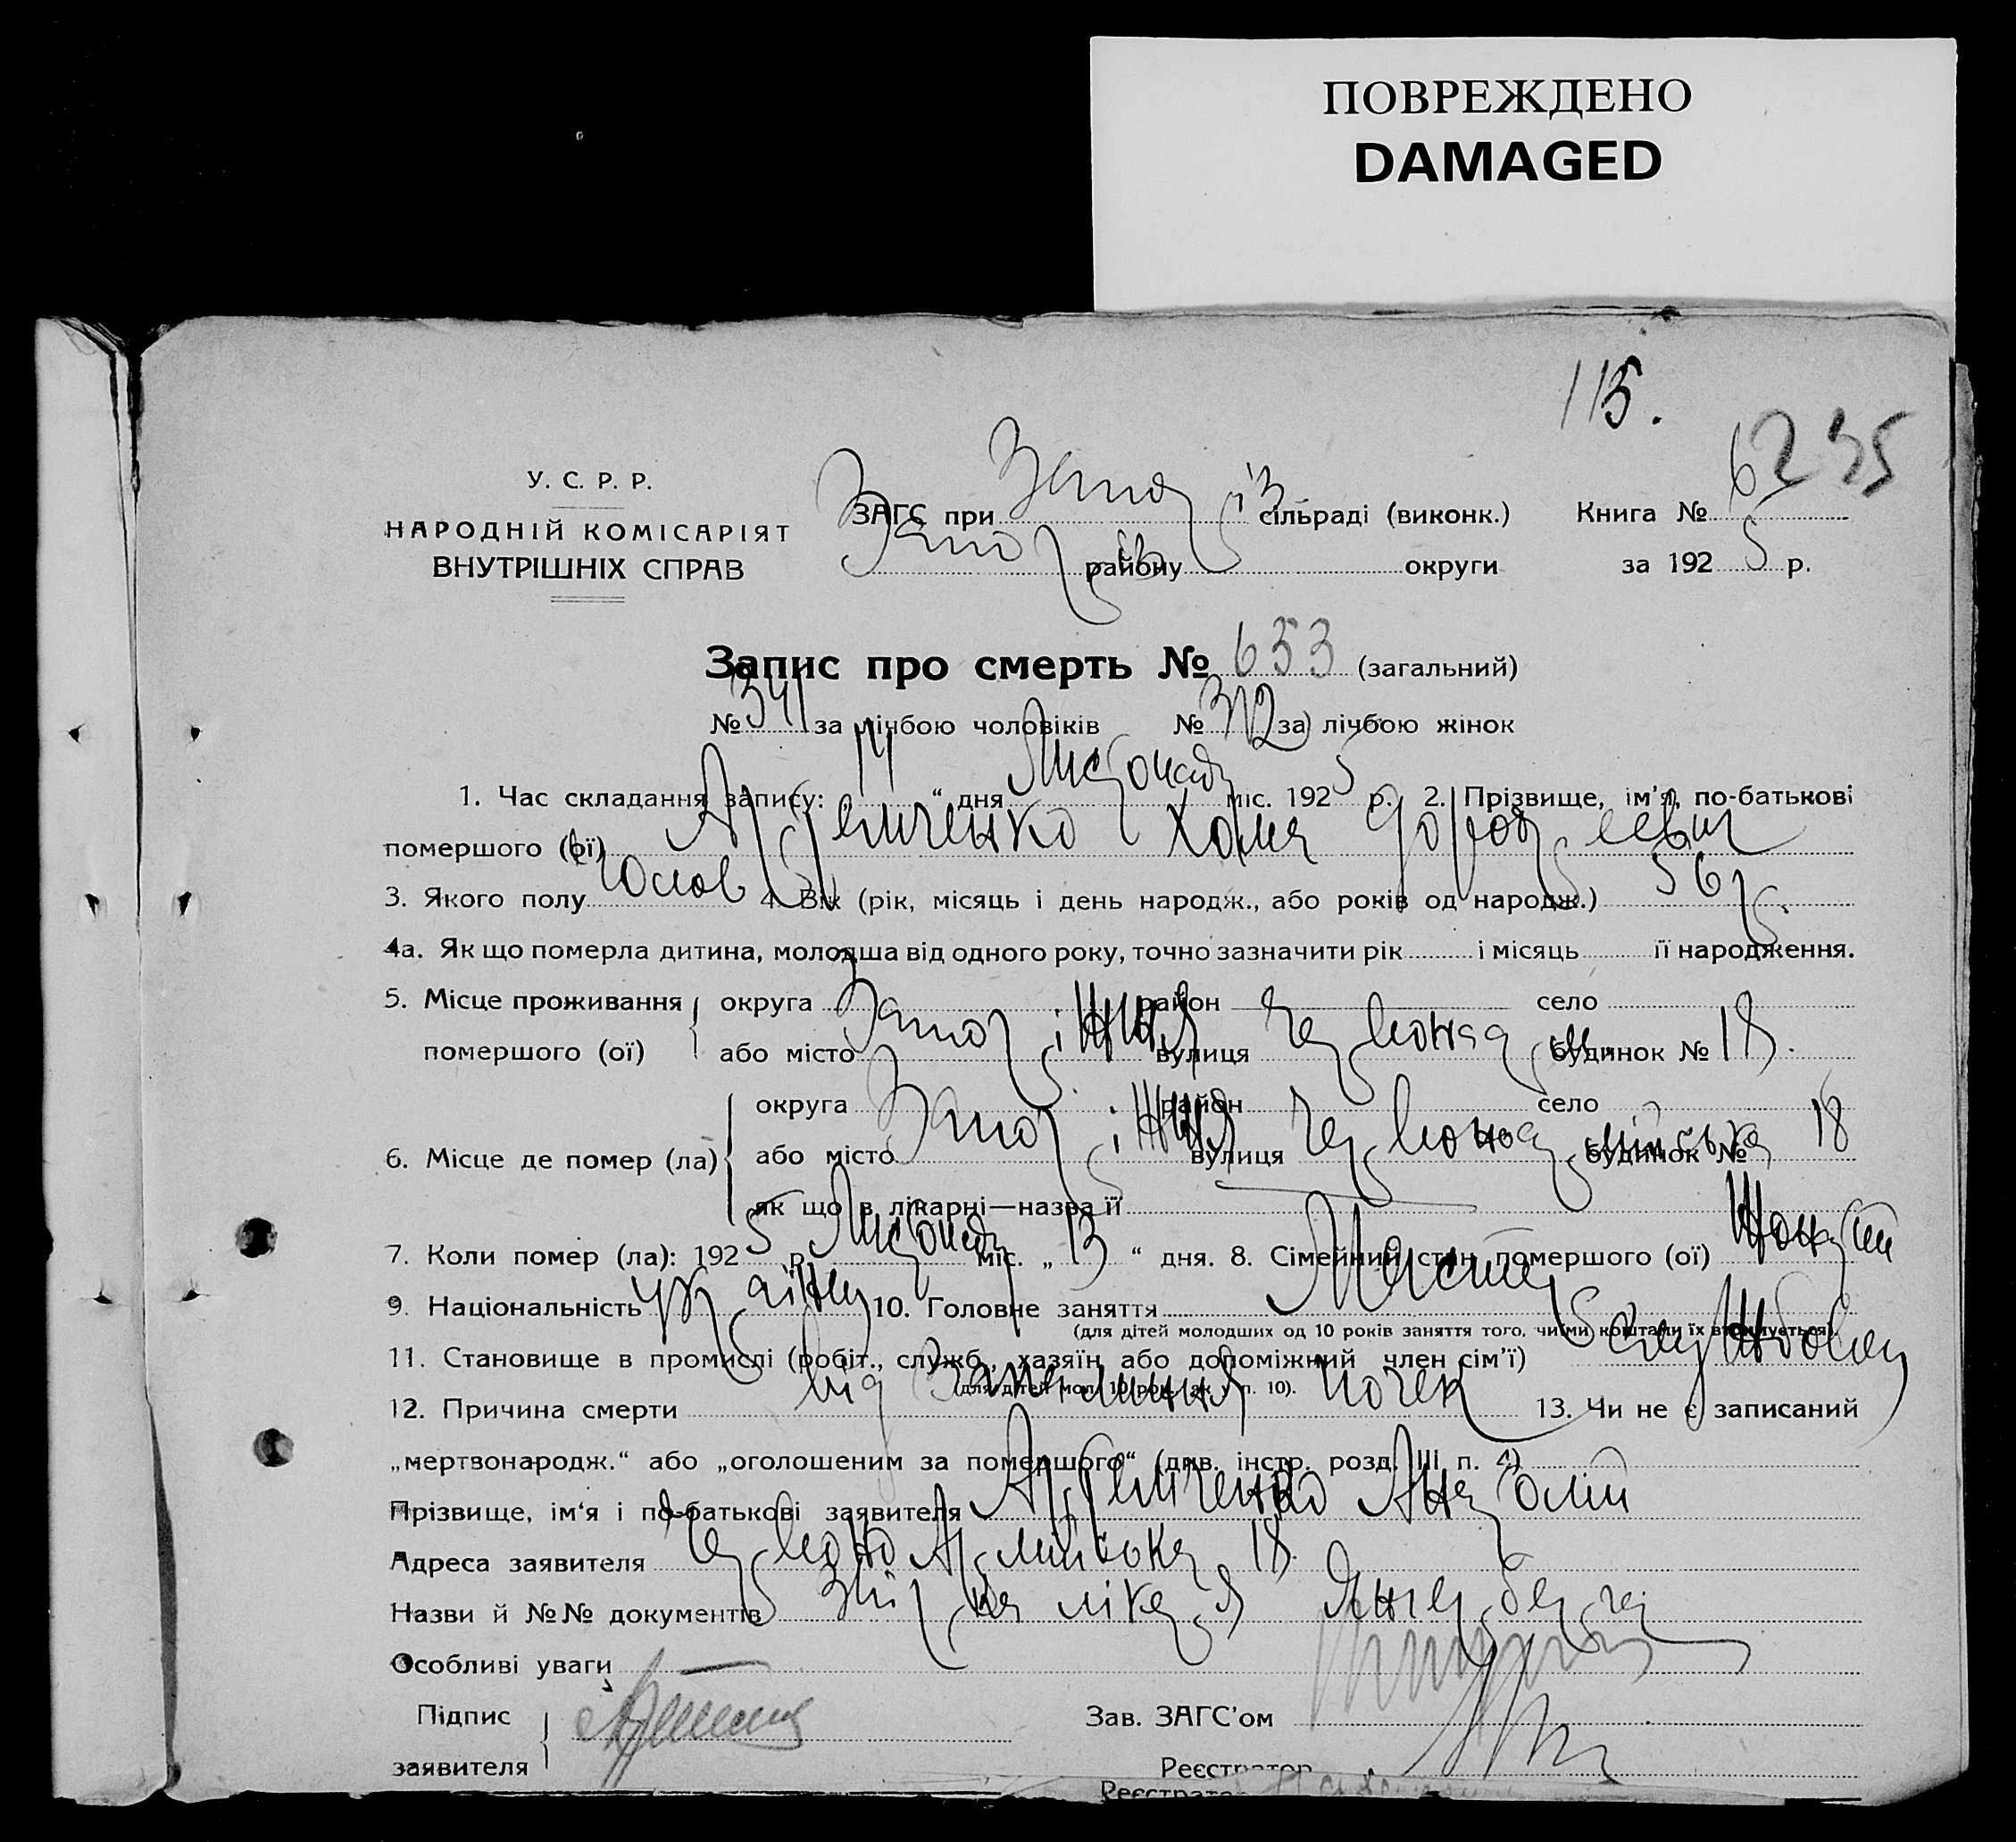 ПОВРЕЖДЕНО
DAMAGED
115.
6235
У. С. Р. Р.
НАРОДНІЙ КОМІСАРІЯТ
ВНУТРІШНІХ СПРАВ
ЗАГС при Запоріз сільраді (виконк.) Книга №
району округи за 1925 р.
Запис про смерть № 653 (загальний)
№ 341 за лічбою чоловіків № 312 за лічбою жінок
1. Час складання запису: 14 “ дня Листопада міс. 1925 р. 2. Прізвище, ім’я, по-батькові
помершого (ої) Артемченко Хома
3. Якого полу Чолов 4. Вік (рік, місяць і день народж., або років од народж.) 56 р.
4а. Як що померла дитина, молодша від одного року, точно зазначити рік і місяць її народження.
5. Місце проживання округа район село
помершого (ої) або місто Запоріжжя вулиця Червоноарм. будинок № 18.
округа район село
6. Місце де помер (ла) або місто Запоріжжя вулиця Червоноармійська будинок № 18
як що в лікарні—назва її
7. Коли помер (ла): 1925 р. Листопада міс. „ 13 “ дня. 8. Сімейний стан помершого (ої) Жонатий
9. Національність українец 10. Головне заняття Маляр
(для дітей молодших од 10 років заняття того, чиїми коштами їх втримується).
11. Становище в промислі (робіт., служб., хазяїн або допоміжний член сім’ї) Службовец
(для дітей мол. 10 рок. як у п. 10).
12. Причина смерти від Запалення почек 13. Чи не є записаний
„мертвонародж.“ або „оголошеним за помершого“ (див. інстр. розд. III п. 4)
Прізвище, ім‘я і по-батькові заявителя Артемченко Анатолий
Адреса заявителя Червоно Армійська 18.
Назви й №№ документів лікаря
Особливі уваги
Підпис Зав. ЗАГС’ом
заявителя Реєстратор